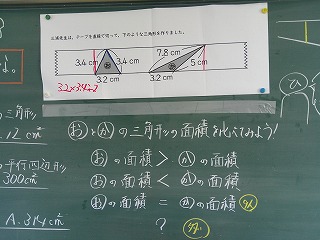 三浦先生は、テープを直線で切って、下のような三角形を作りました。
3.4 cm
3.4 cm
3.2 cm
7.8 cm
5 cm
3.2 cm
3.2×3.4÷2
おとかの三角形の面積を比べてみよう!
おの面積 > かの面積
おの面積 < かの面積
おの面積 = かの面積
?
の三角形
12 cm²
の平行四辺形
300cm²
A. 314cm²
か